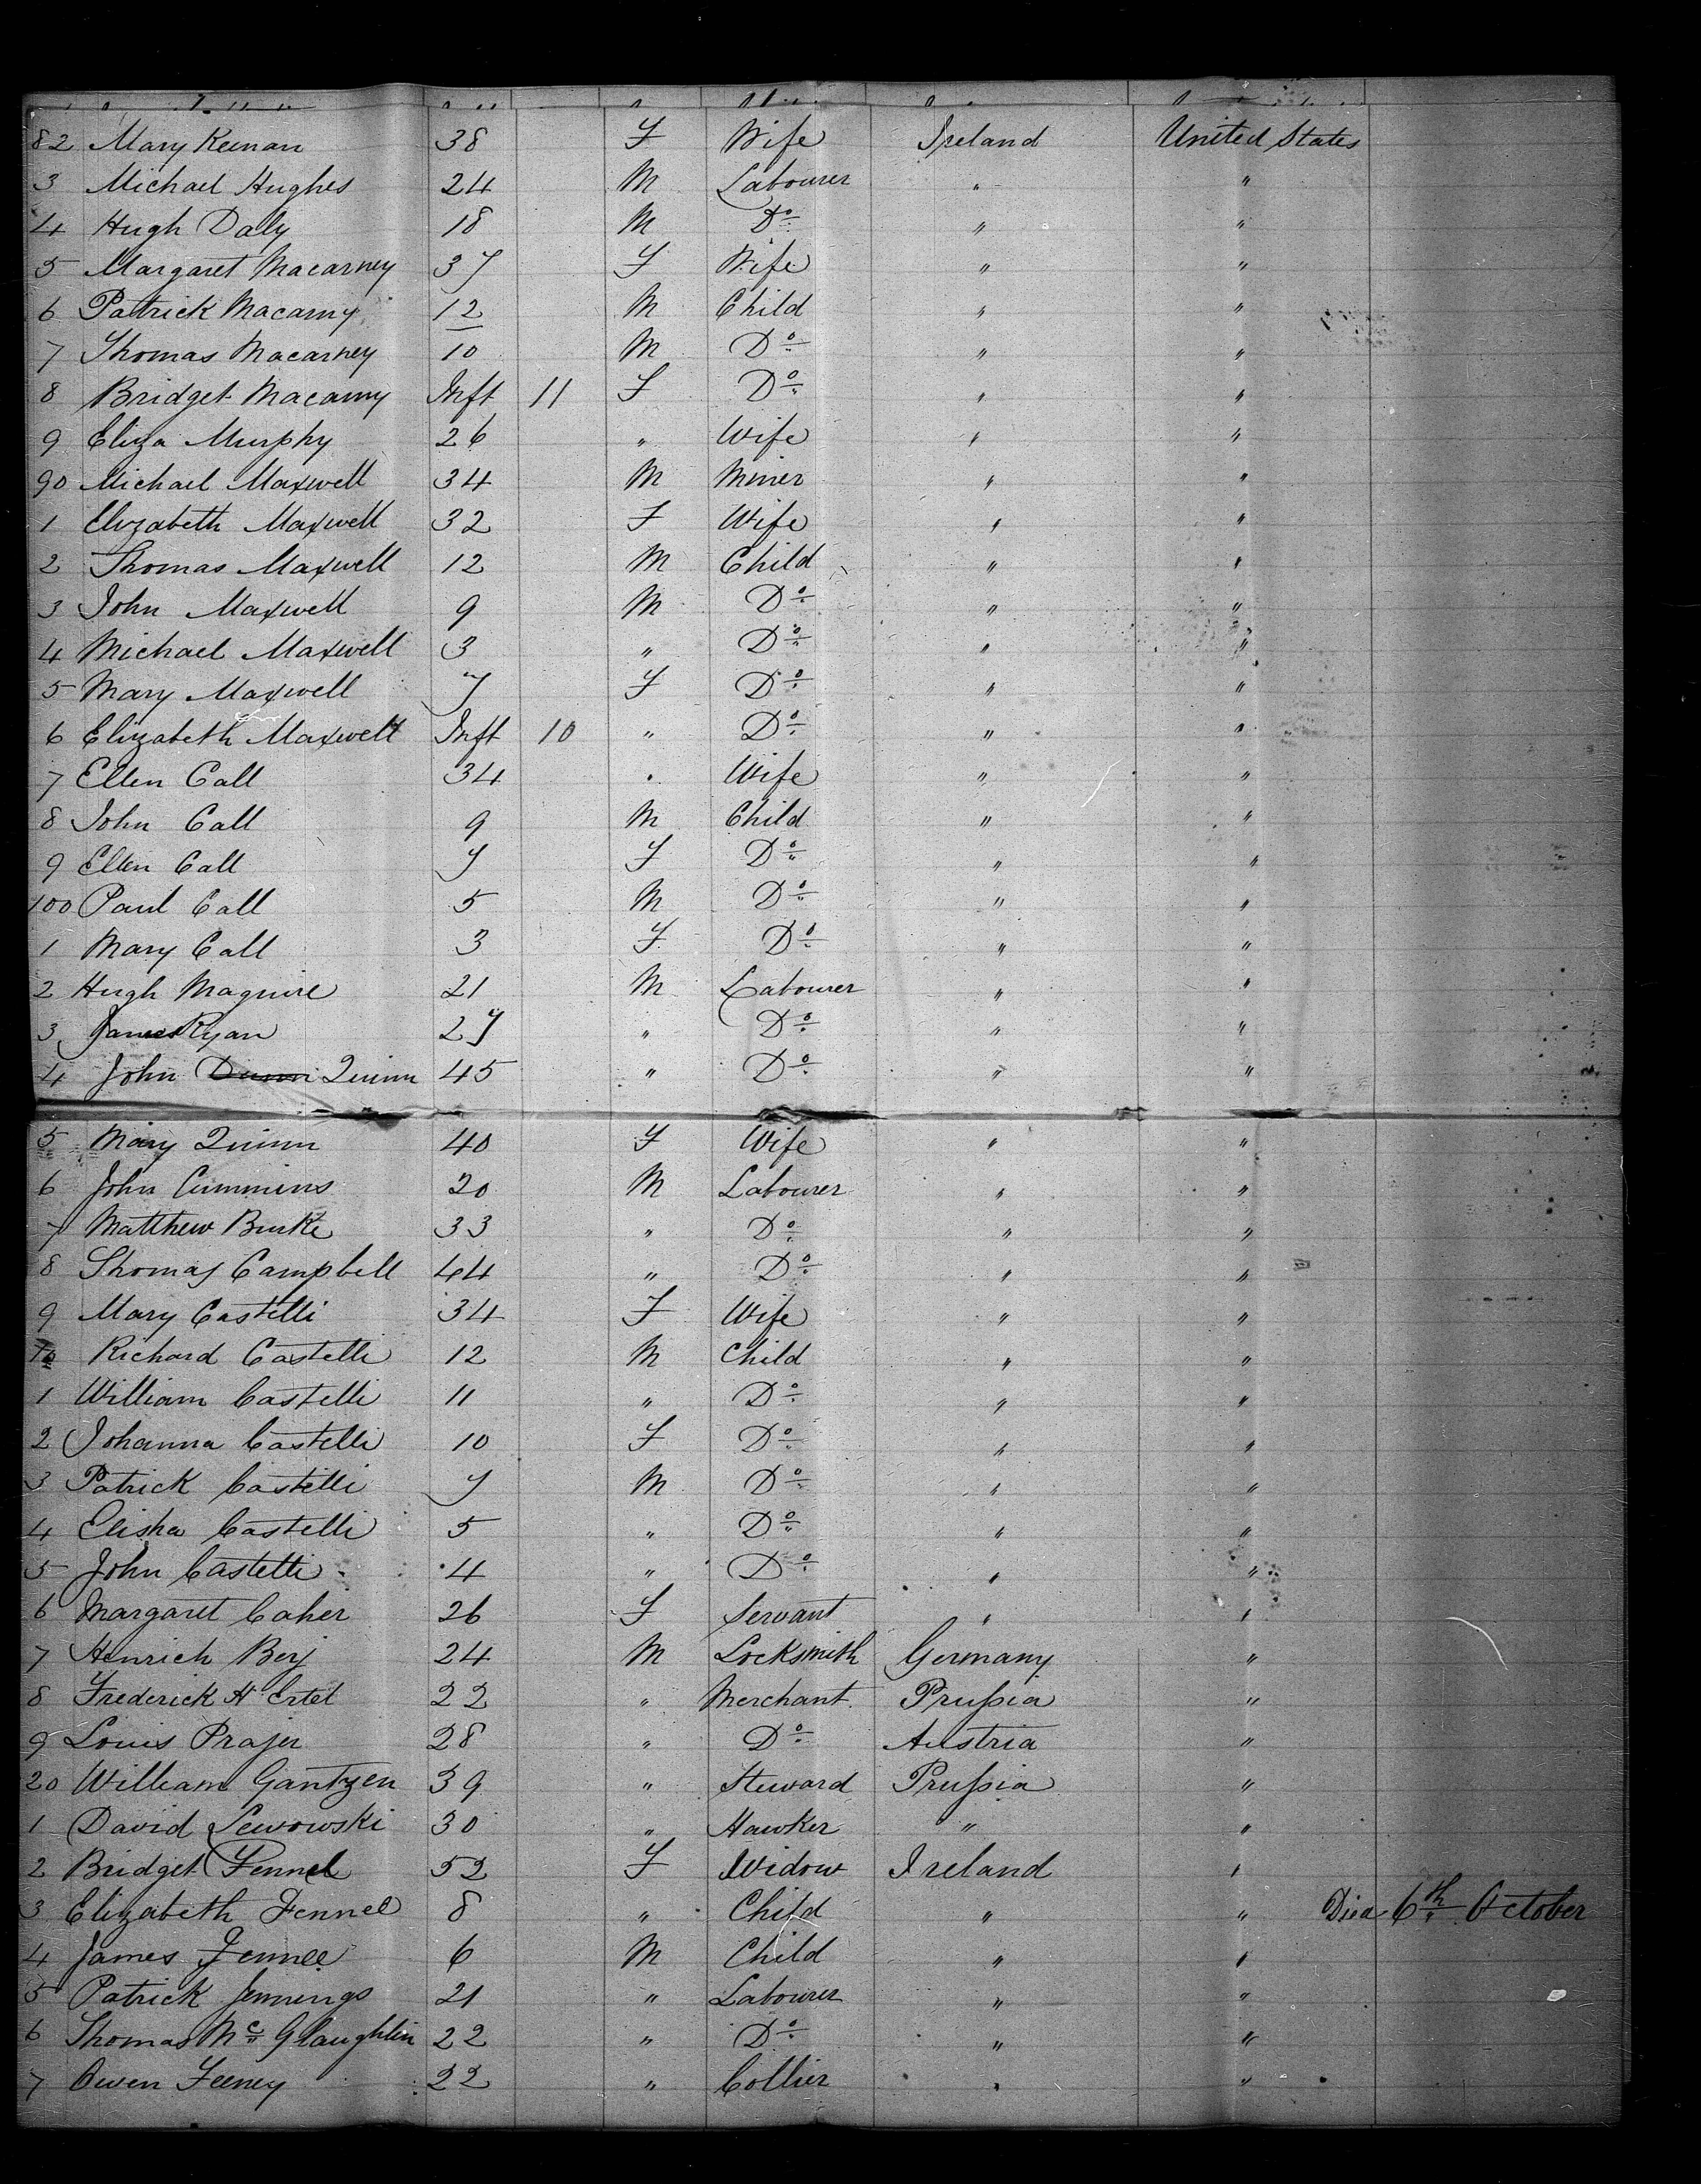 82 Mary Keenan 38 F Wife Ireland United States
3 Michael Hughes 24 M Labourer " "
4 Hugh Daly 18 M Do " "
5 Margaret Macarney 37 F Wife " "
6 Patrick Macarny 12 M Child " "
7 Thomas Macarney 10 M Do " "
8 Bridget Macarny Inft 11 F Do " "
9 Eliza Murphy 26 " Wife " "
90 Michael Maxwell 34 M Miner " "
1 Elizabeth Maxwell 32 F Wife " "
2 Thomas Maxwell 12 M Child " "
3 John Maxwell 9 M Do " "
4 Michael Maxwell 3 " Do " "
5 Mary Maxwell 7 F Do " "
6 Elizabeth Maxwell Inft 10 " Do " "
7 Ellen Call 34 " Wife " "
8 John Call 9 M Child " "
9 Ellen Call 7 F Do " "
100 Paul Call 5 M Do " "
1 Mary Call 3 F Do " "
2 Hugh Maguire 21 M Labourer " "
3 James Ryan 27 " Do " "
4 John Dunn Quinn 45 " Do " "
5 Mary Quinn 40 F Wife " "
6 John Cummins 20 M Labourer " "
7 Matthew Burke 33 " Do " "
8 Thomas Campbell 44 " Do " "
9 Mary Castelli 34 F Wife " "
10 Richard Castelli 12 M Child " "
1 William Castelli 11 " Do " "
2 Johanna Castelli 10 F Do " "
3 Patrick Castelli 7 M Do " "
4 Elisha Castelli 5 " Do " "
5 John Castelli 4 " Do " "
6 Margaret Caher 26 F Servant " "
7 Henrich Berj 24 M Locksmith Germany "
8 Frederick H Ertel 22 " Merchant Prussia "
9 Louis Prajer 28 " Do Austria "
20 William Gantzen 39 " Steward Prussia "
1 David Lewowski 30 " Hawker " "
2 Bridget Fennel 52 F Widow Ireland "
3 Elizabeth Fennel 8 " Child " " Died 6th October
4 James Fennel 6 M Child " "
5 Patrick Jennings 21 " Labourer " "
6 Thomas Mc Glaughlin 22 " Do " "
7 Owen Feeney 22 " Collier " "